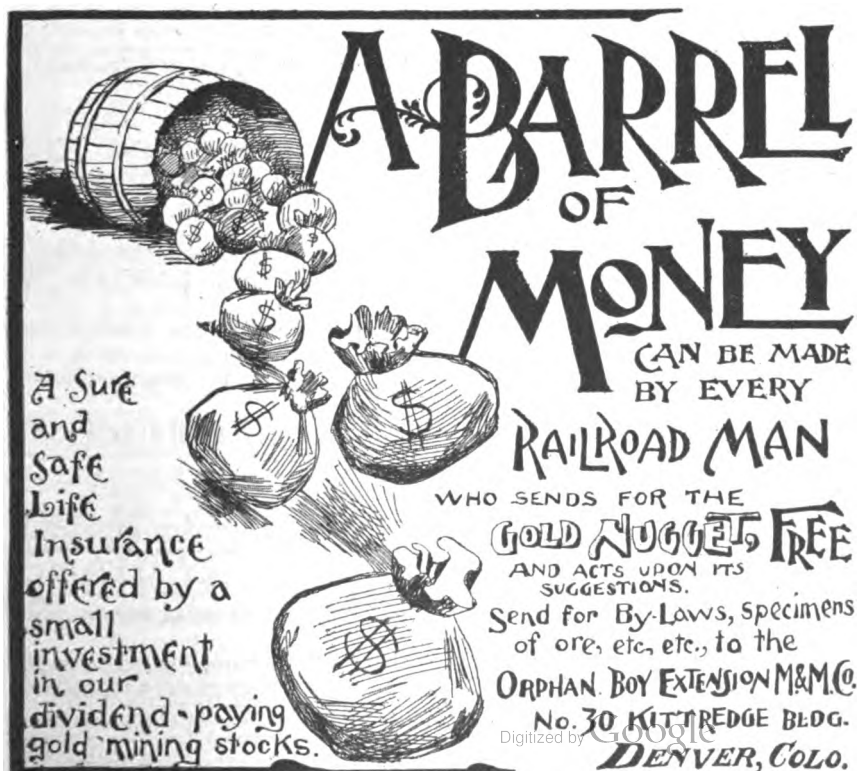 A BARREL
OF
MONEY
CAN BE MADE
BY EVERY
RAILROAD MAN
WHO SENDS FOR THE
GOLD NUGGET, FREE
AND ACTS UPON ITS
SUGGESTIONS.
Send for By-Laws, specimens
of ore, etc, etc., to the
ORPHAN BOY EXTENSION M&M.CO.
No. 30 KITTREDGE BLDG.
DENVER, COLO.
A Sure
and
Safe
Life
Insurance
offered by a
small
investment
in our
dividend-paying
gold mining stocks.
$
$
$
$
$
$
$
$
$
Digitized by Google